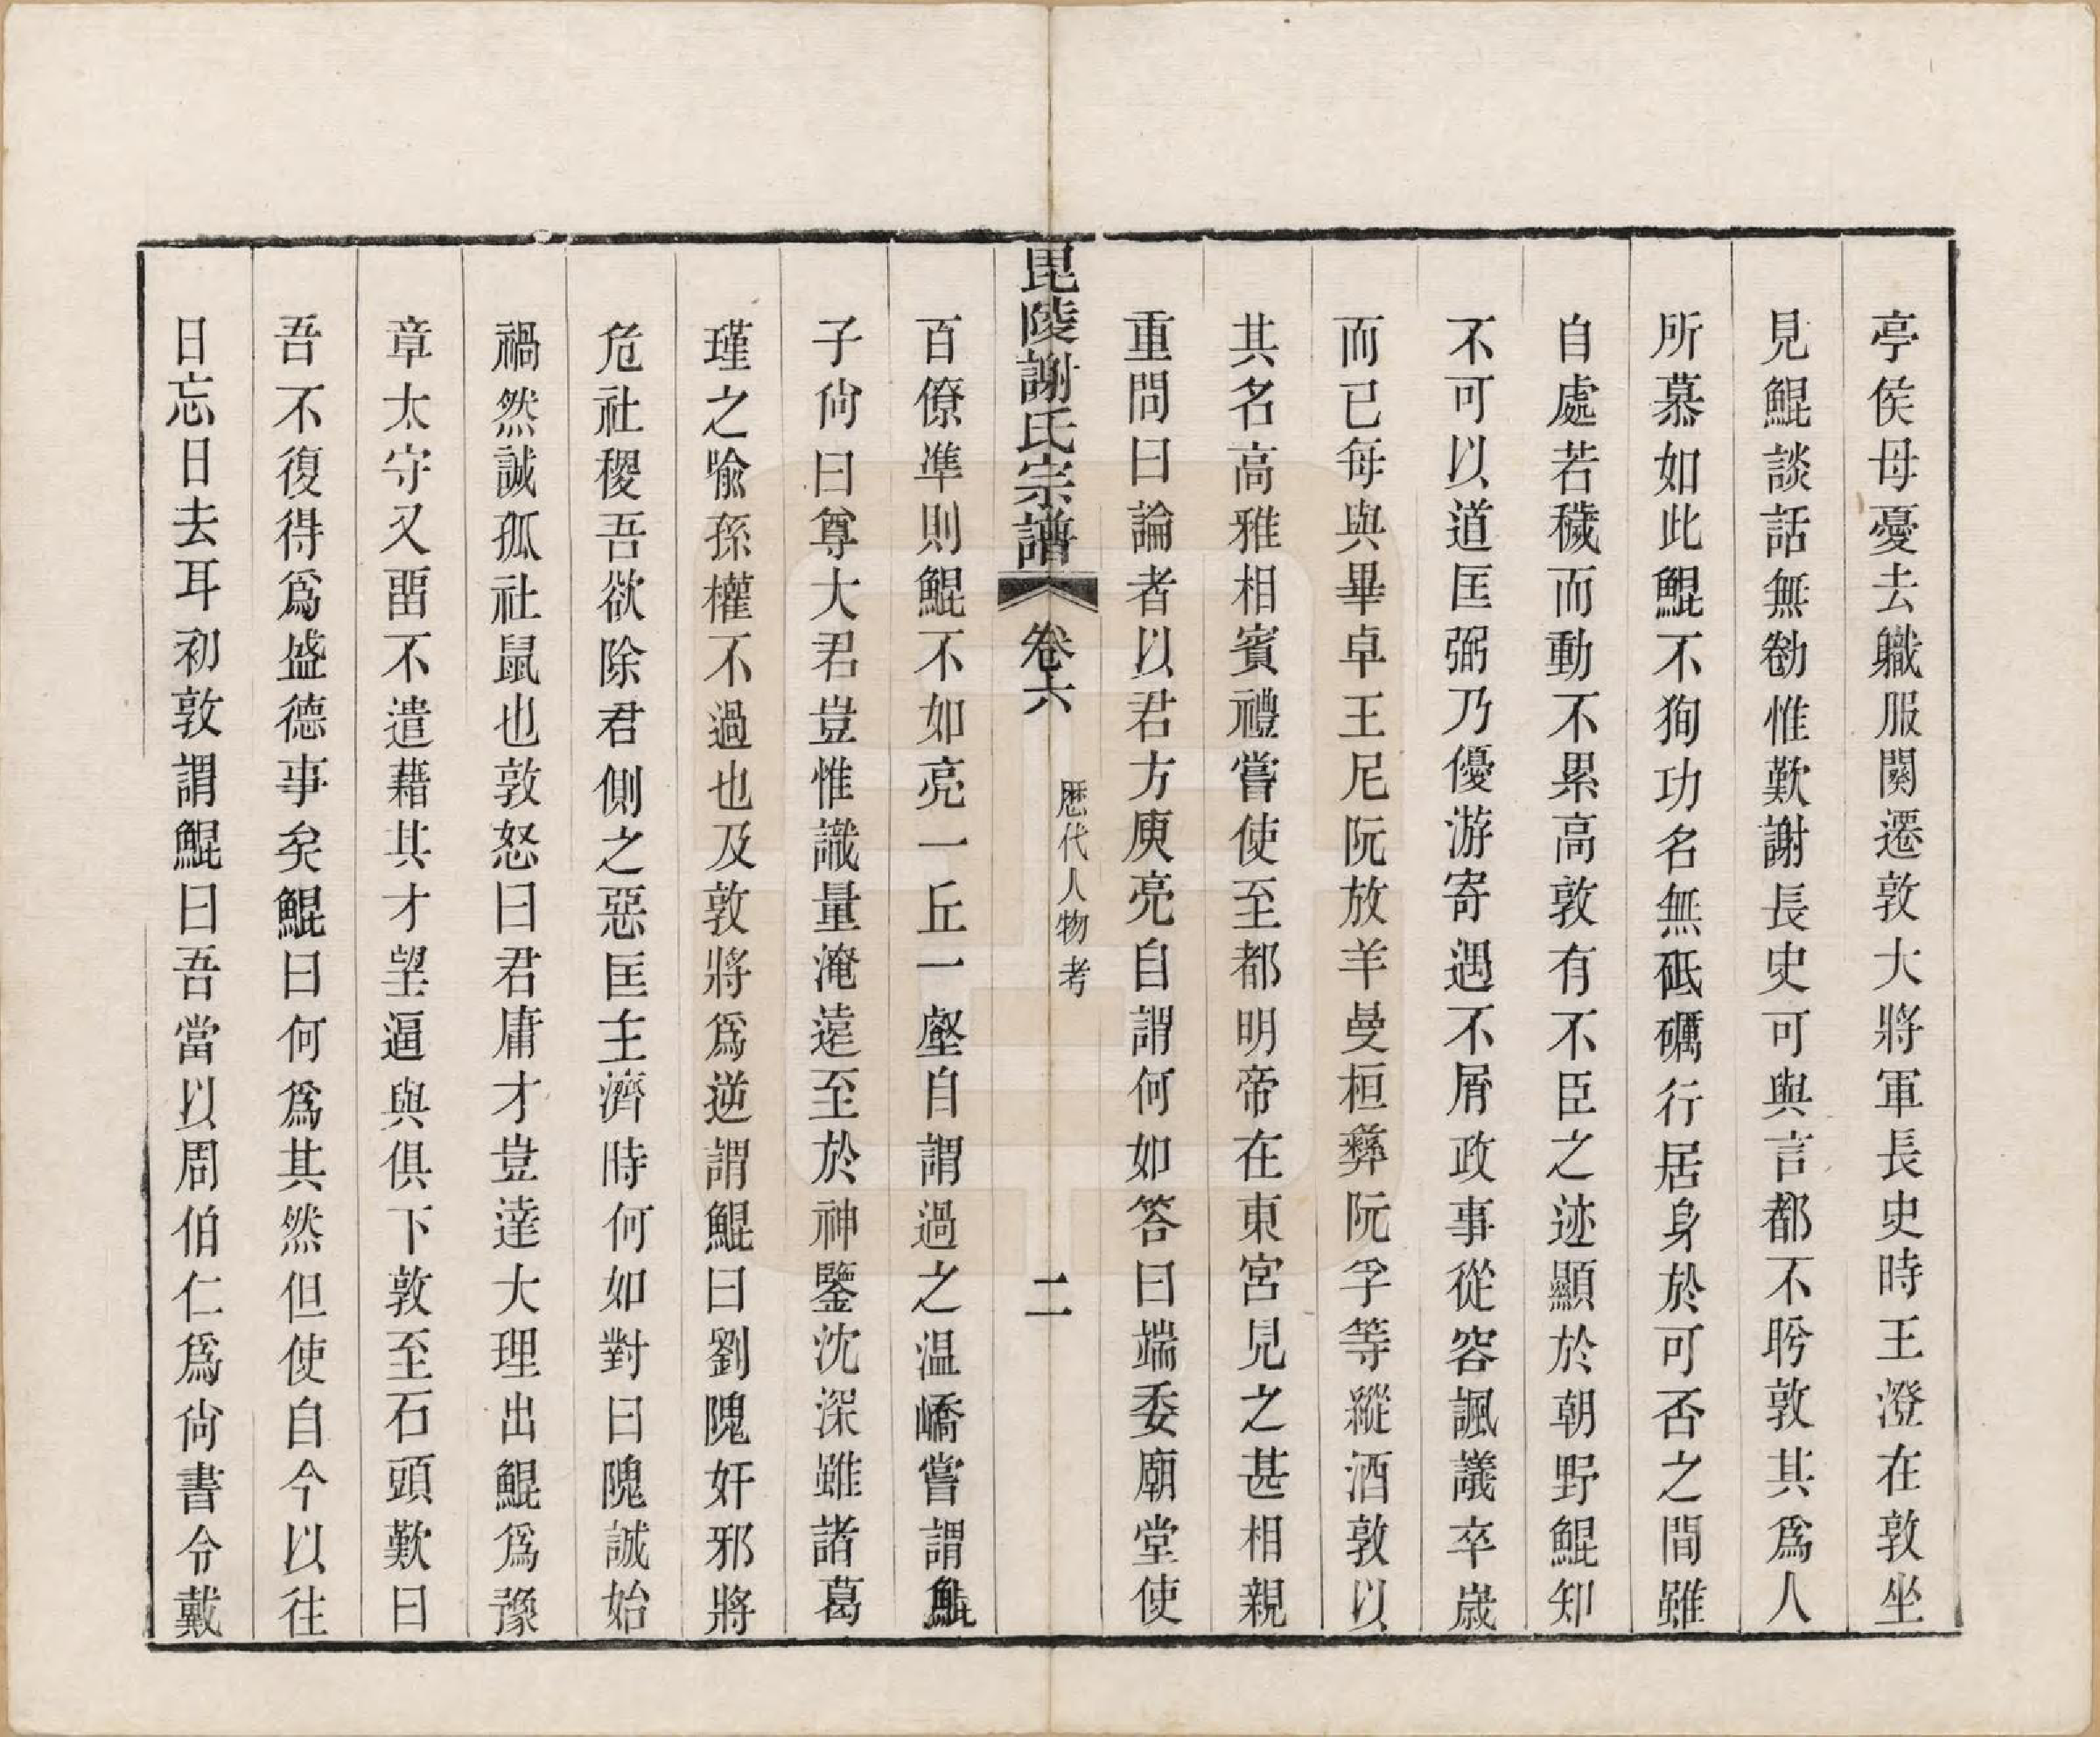 亭侯母憂去職服闋遷敦大將軍長史時王澄在敦坐
見鯤談話無勌惟歎謝長史可與言都不眄敦其爲人
所慕如此鯤不狥功名無砥礪行居身於可否之間雖
自處若穢而動不累高敦有不臣之迹顯於朝野鯤知
不可以道匡弼乃優游寄遇不屑政事從容諷議卒歲
而已每與畢卓王尼阮放羊曼桓彝阮孚等縱酒敦以
其名高雅相賓禮嘗使至都明帝在東宮見之甚相親
重問曰論者以君方庾亮自謂何如答曰端委廟堂使
毘陵謝氏宗譜 卷六 歷代人物考 二
百僚準則鯤不如亮一丘一壑自謂過之温嶠嘗謂鯤
子尙曰尊大君豈惟識量淹遠至於神鑒沈深雖諸葛
瑾之喻孫權不過也及敦將爲逆謂鯤曰劉隗奸邪將
危社稷吾欲除君側之惡匡主濟時何如對曰隗誠始
禍然誠孤社鼠也敦怒曰君庸才豈達大理出鯤爲豫
章太守又畱不遣藉其才望逼與俱下敦至石頭歎曰
吾不復得爲盛德事矣鯤曰何爲其然但使自今以往
日忘日去耳初敦謂鯤曰吾當以周伯仁爲尙書令戴